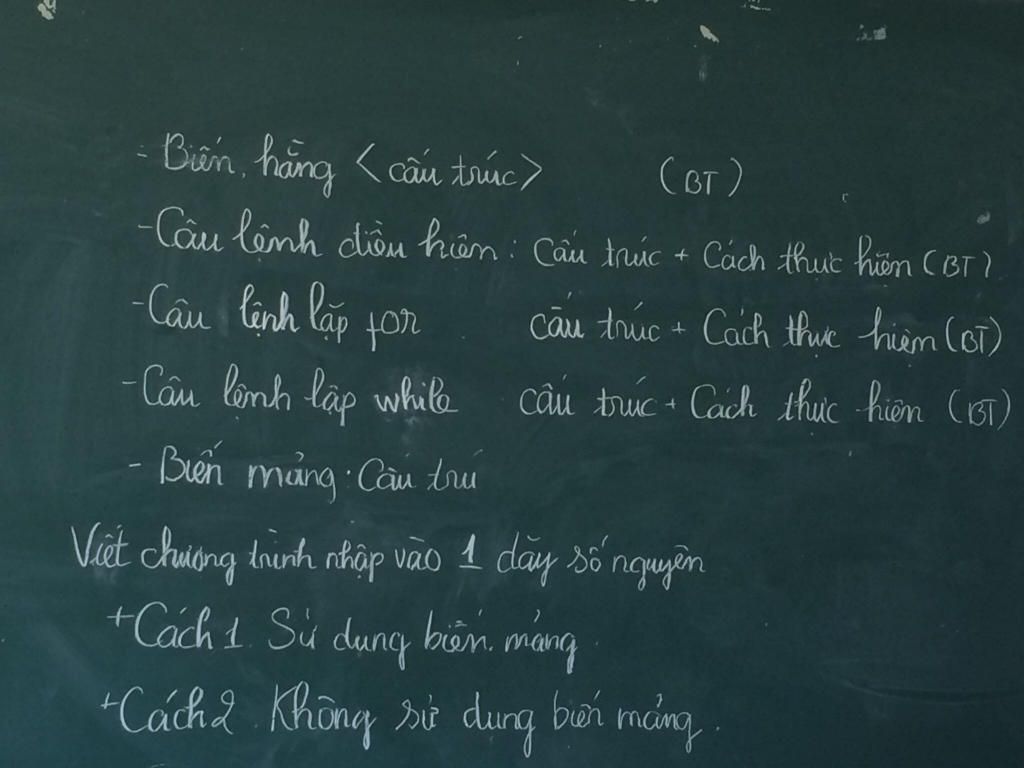 - Biến, hằng <cấu trúc> (BT)
- Câu lệnh điều kiện: Cấu trúc + Cách thực hiện (BT)
- Câu lệnh lặp for cấu trúc + Cách thực hiện (BT)
- Câu lệnh lặp while cấu trúc + Cách thực hiện (BT)
- Biến mảng: Cấu trú
Viết chương trình nhập vào 1 dãy số nguyên
+ Cách 1. Sử dụng biến mảng.
+ Cách 2. Không sử dụng biến mảng.